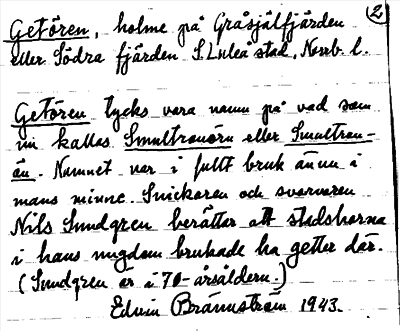 2
Getören, holme på Gråsjälfjärden
eller Södra fjärden S. Luleå stad, Norrb. l.
Getören tycks vara namn på vad som
nu kallas Smultronörn eller Smultron-
ön. Namnet var i fullt bruk ännu i
mans minne. Snickaren och svarvaren
Nils Sundgren berättar att stadsborna
i hans ungdom brukade ha getter där.
(Sundgren är i 70-årsåldern.)
Edvin Brännström 1943.